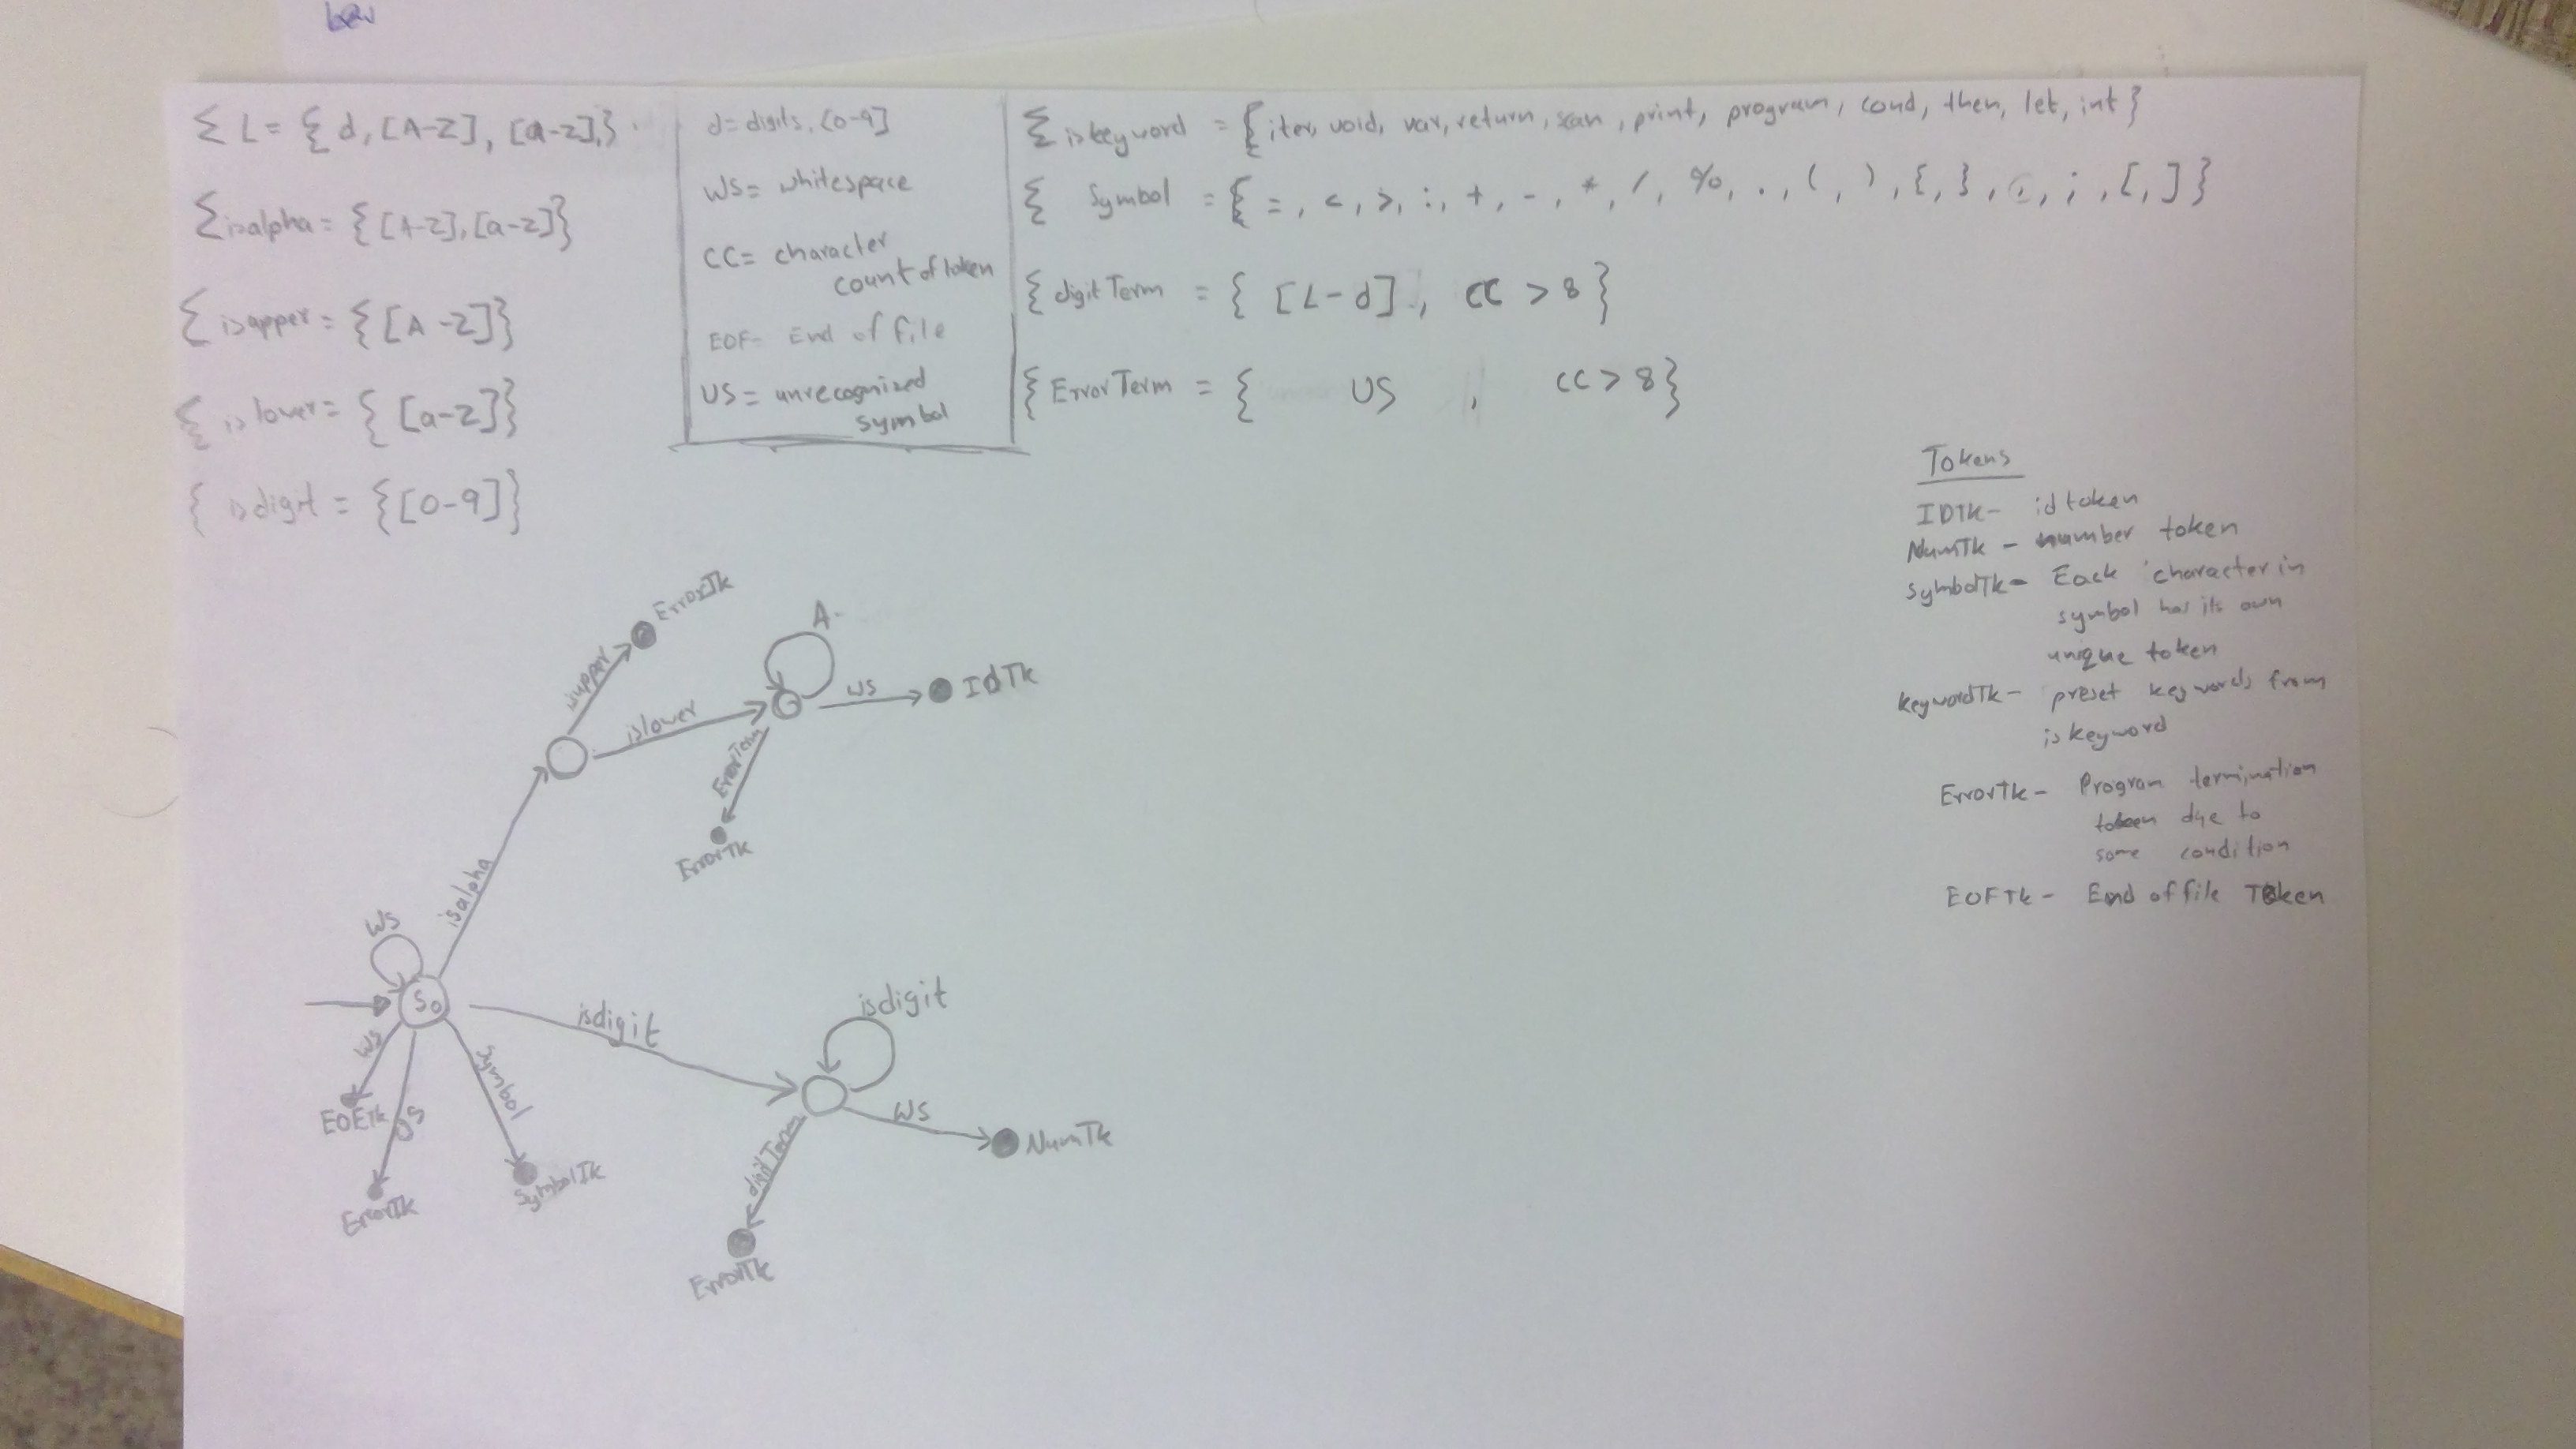 Σ L = { d, [A-Z], [a-z],}
Σ isalpha = {[A-Z],[a-z]}
Σ isapper = {[A-Z]}
Σ islower = {[a-z]}
{ isdigit = {[0-9]}
d = digits, [0-9]
WS = whitespace
CC = character
count of token
EOF- End of file
US = unrecognized
symbol
Σ iskeyword = {iter, void, var, return, scan, print, program, cond, then, let, int}
{ Symbol = { =, <, >, :, +, -, *, /, %, ., (, ), {, }, ,, ;, [, ] }
{ digitTerm = { [L-d], CC > 8 }
{ ErrorTerm = { US , CC > 8 }
Tokens
IDTk- id token
NumTk - number token
symbolTk- Each character in
symbol has its own
unique token
keywordTk- preset keywords from
iskeyword
ErrorTk- Program termination
token due to
some condition
EOFTk- End of file Token
ErrorTk
isupper
A
islower
WS
IdTk
ErrorTerm
ErrorTk
isalpha
WS
S0
isdigit
isdigit
WS
NumTk
digitTerm
ErrorTk
WS
EOETk
US
ErrorTk
Symbol
SymbolTk